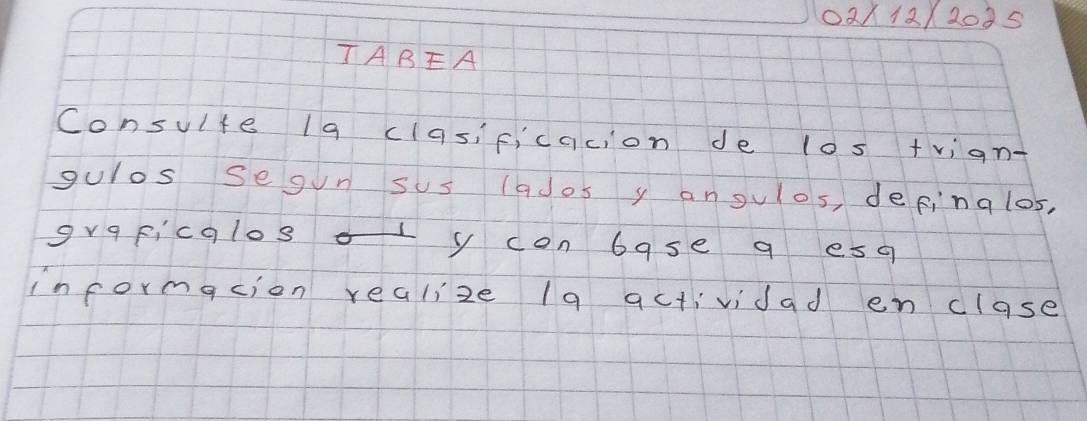 02/12/2025
TABEA
Consulte la clasificacion de los trian-
gulos segun sus lados y angulos, definalos,
graficalos y con base a esa
informacion realize la actividad en clase